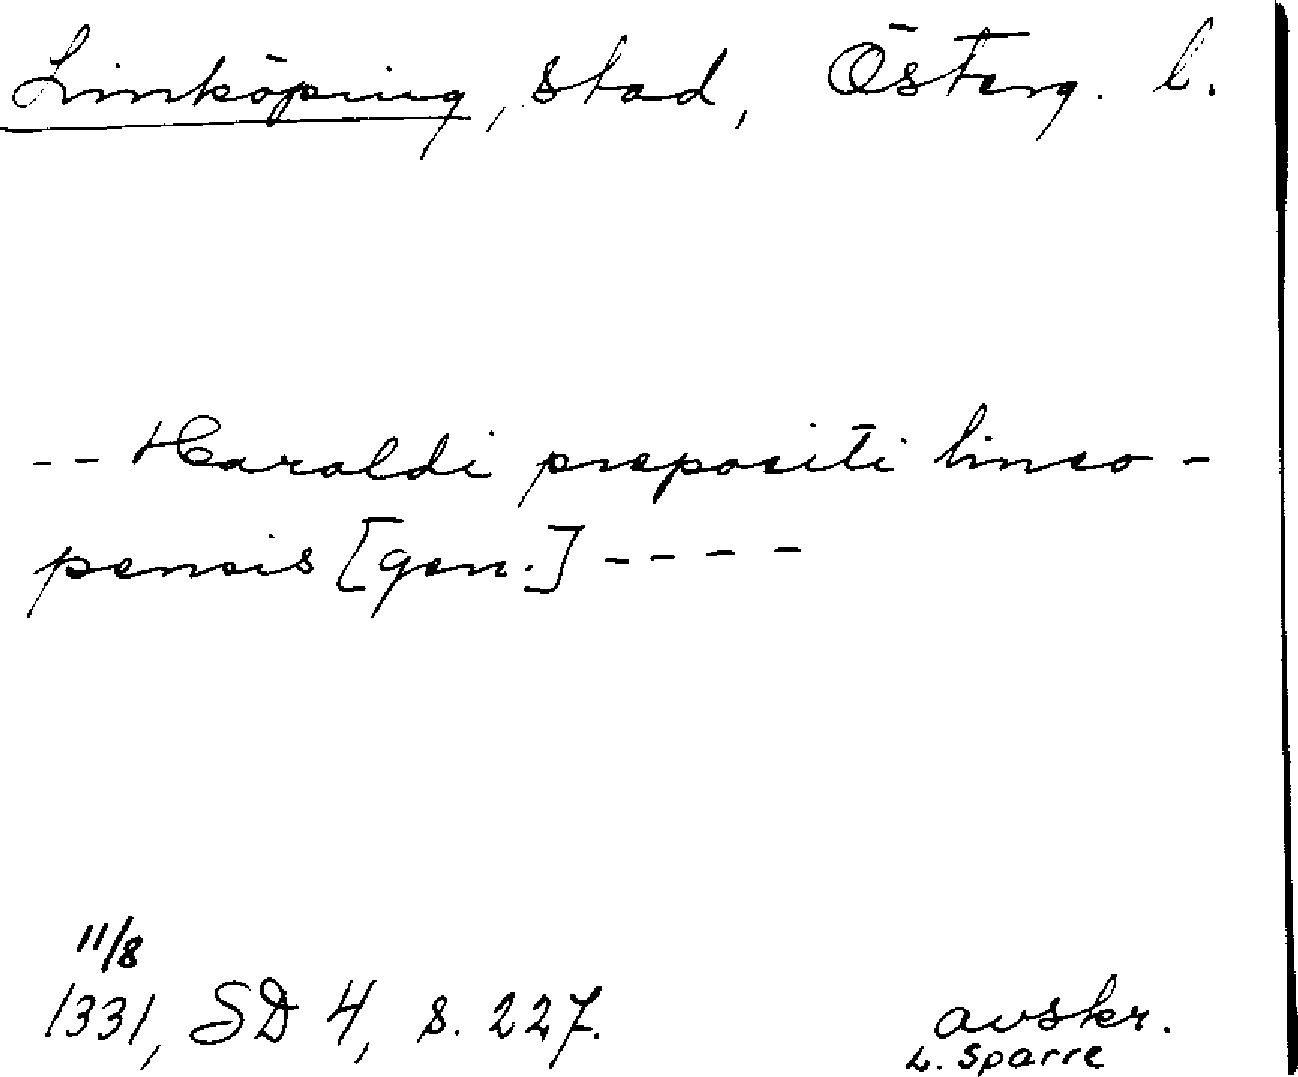 Linköping, stad, Österg. l.
-- Haraldi prepositi linco-
pensis [gen.] ----
11/8
1331, SD 4, s. 227.
avskr.
L. Sparre